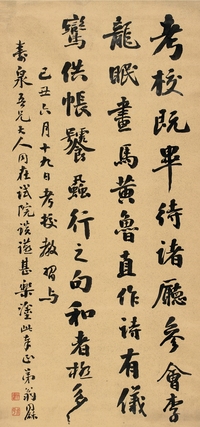 考校既畢待諸廳參會李
龍眠畫馬黃魯直作詩有儀
鸞供帳饕蝨行之句和者極多
己丑六月十九日考校教習与
壽泉吾兄大人同在試院談讌甚樂塗此奉正弟翁